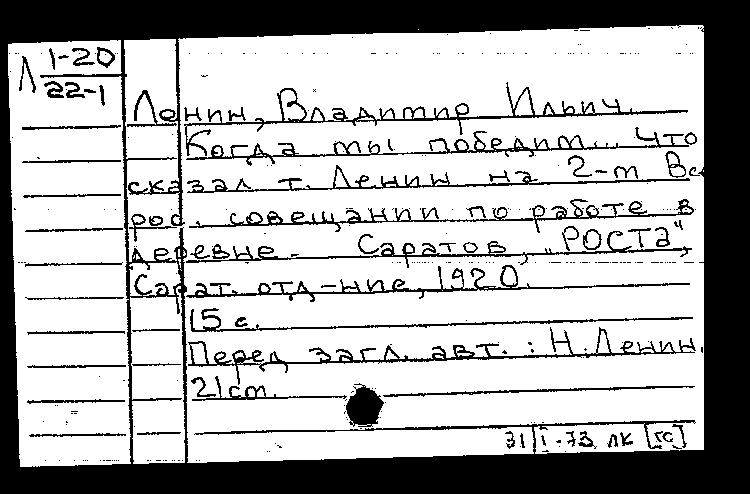 Л 1-20
22-1
Ленин, Владимир Ильич.
Когда мы победим... Что
сказал т. Ленин на 2-м Все
рос. совещании по работе в
деревне. Саратов, „РОСТА“,
Сарат. отд-ние, 1920.
15 с.
Перед загл. авт.: Н. Ленин.
21 см.
31/I-73 ЛК [ГС]